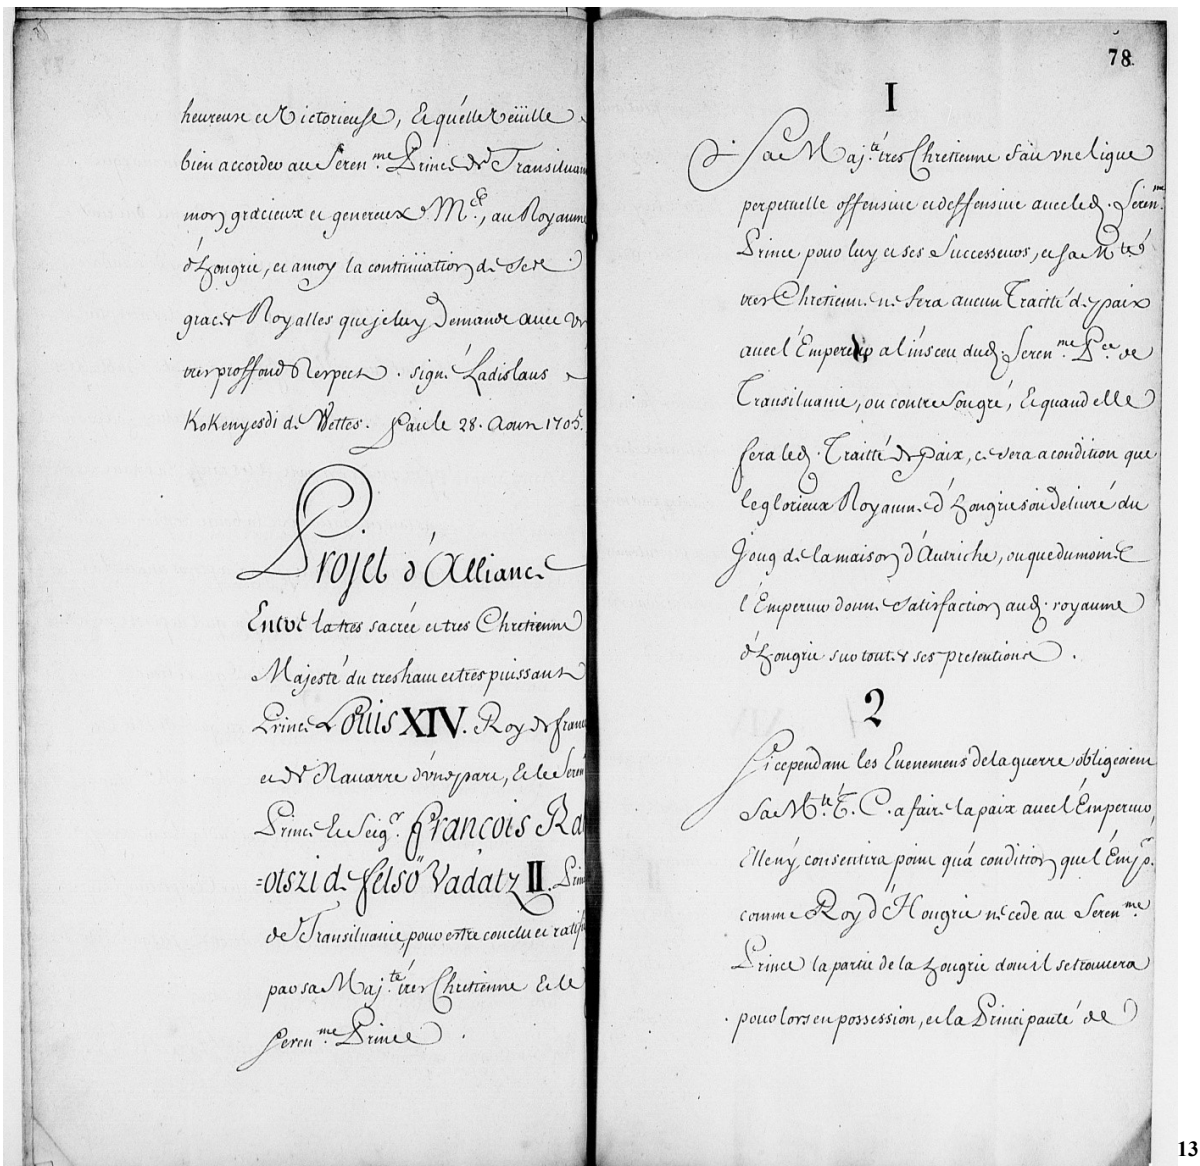 heureuse et Victorieuse, Et qu'elle Veüille
bien accorder au Seren.me Prince de Transiluanie
mon gracieux et genereux M.e, au Royaume
d'hongrie, et amoy la continüation de Ses
graces Royalles que je luy Demande avec Vn
tres proffond Respect. signé Ladislaus
KoKenyesdi de Vettes. Faul le 28. Aoust 1705.
Projet d'Alliance
Entre la tres sacrée et tres Chretienne
Majesté du tres haut et tres puissant
Prince Louis XIV. Roy de france
et de Nauarre d'une part, Et le Seren
Prince le Seig.r francois Ra
=otszi de felsö Vadatz II. Prin
de Transiluanie, pour estre conclu et ratifié
par sa Maj.té tres Chretienne Et le
Seren.me Prince.
78
I
Sa Maj.té tres Chretienne fait vne ligue
perpetuelle offensiue et deffensiue auec led. Seren.me
Prince pour luy et ses Successeurs, et sa M.té
tres Chretienne ne fera aucun Traitté de paix
auec l'Empereur a l'insceu dud. Seren.me P.ce de
Transiluanie, ou contre son gré, Et quand elle
fera led. Traitté de Paix, ce sera a condition que
le glorieux Royaume d'hongrie soit deliuré du
Joug de la maison d'Autriche, ou que du moins
l'Empereur donne Satisfaction aud. royaume
d'hongrie sur toutes ses pretentions.
2
Si cependant les Euenemens de la guerre obligeoient
Sa M.té T. C. a faire la paix auec l'Empereur,
Elle n'y consentira point qu'a condition que l'Emp.r
comme Roy d'Hongrie ne cede au Seren.me
Prince la partie de la hongrie dont il se trouuera
pour lors en possession, et la Principauté de
13